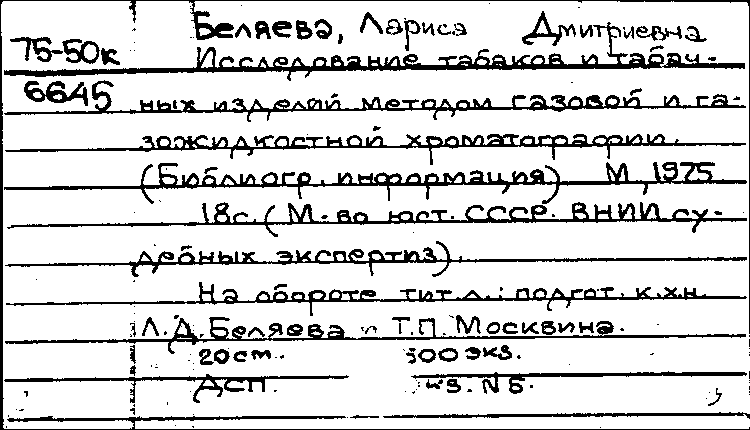 Беляева, Лариса Дмитриевна
75-50к Исследование табаков и табач-
6645 ных изделий методом газовой и га-
зожидкостной хроматографии.
(Библиогр. информация) М, 1975
18с. (М-во юст. СССР. ВНИИ су-
дебных экспертиз).
На обороте тит.л.: подгот. к.х.н.
Л.Д. Беляева и Т.П. Москвина.
20см. 500 экз.
ДСП. экз. №5.